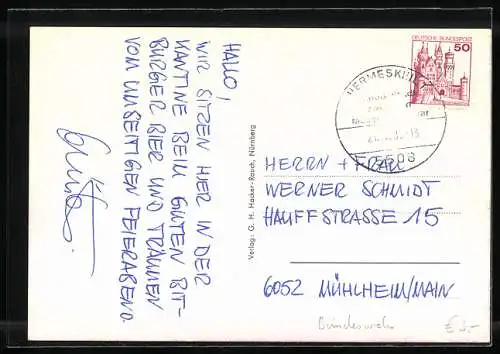 HALLO,
WIR SITZEN HIER IN DER
KANTINE BEIM GUTEN BIT-
BURGER BIER UND TRÄUMEN
VOM UMSEITIGEN FEIERABEND.
Verlag: G. H. Hacker-Rosch, Nürnberg
DEUTSCHE BUNDESPOST
50
HERMESKEIL
5508
HERRN + FRAU
WERNER SCHMIDT
HAUFFSTRASSE 15
6052 MÜHLHEIM/MAIN
Bundeswehr